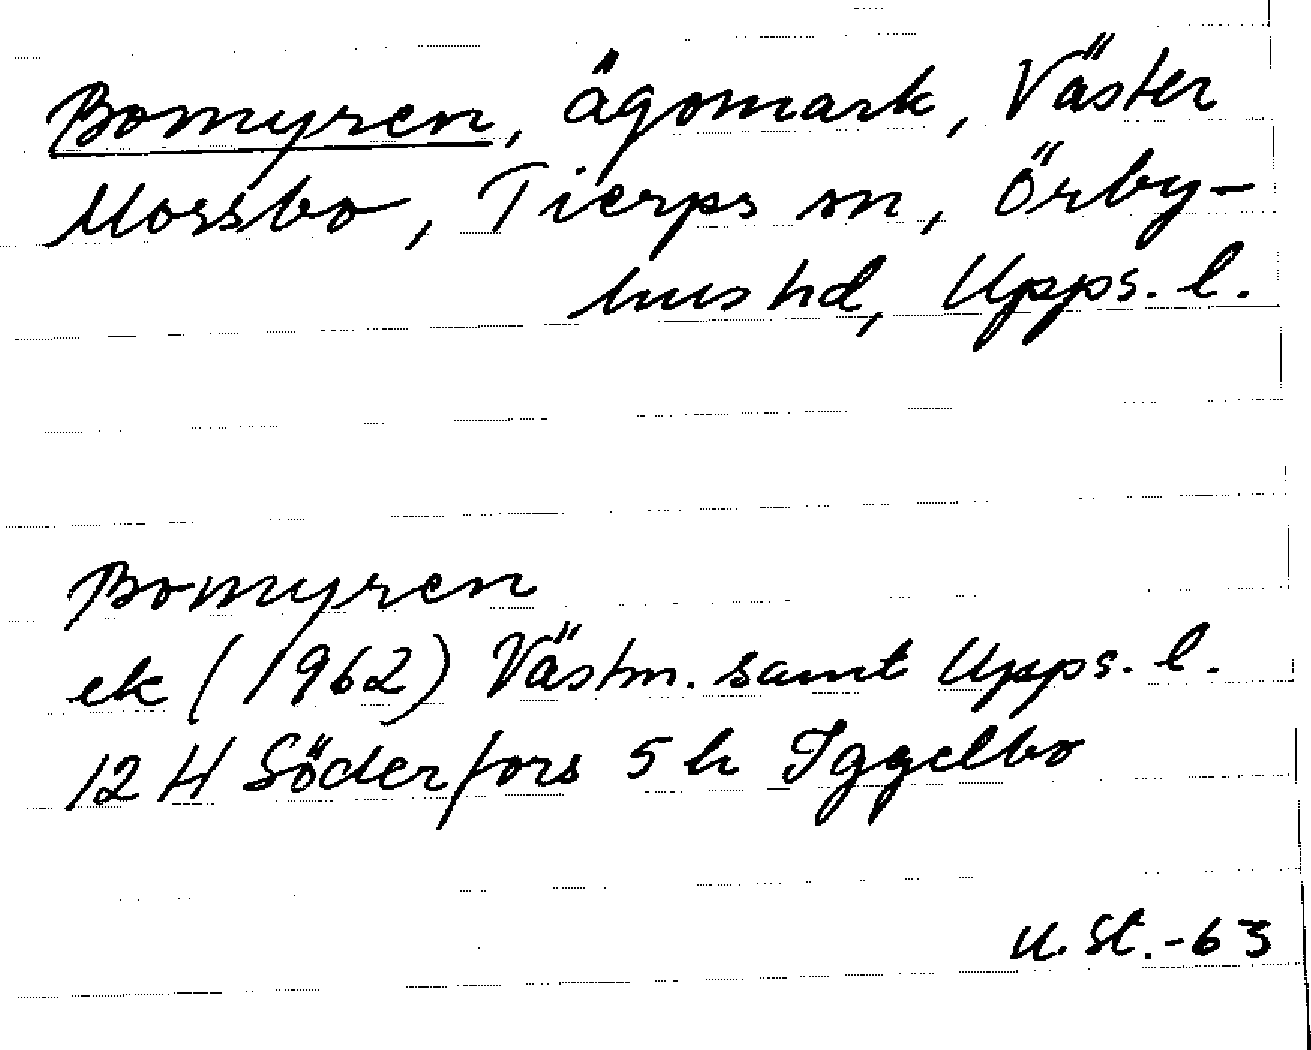 Bomyren, ägomark, Väster
Mossbo, Tierps sn, Örby-
hus hd, Upps. l.
Bomyren
ek (1962) Västm. samt Upps. l.
12 H Söderfors 5 h Iggelbo
U. St. -63